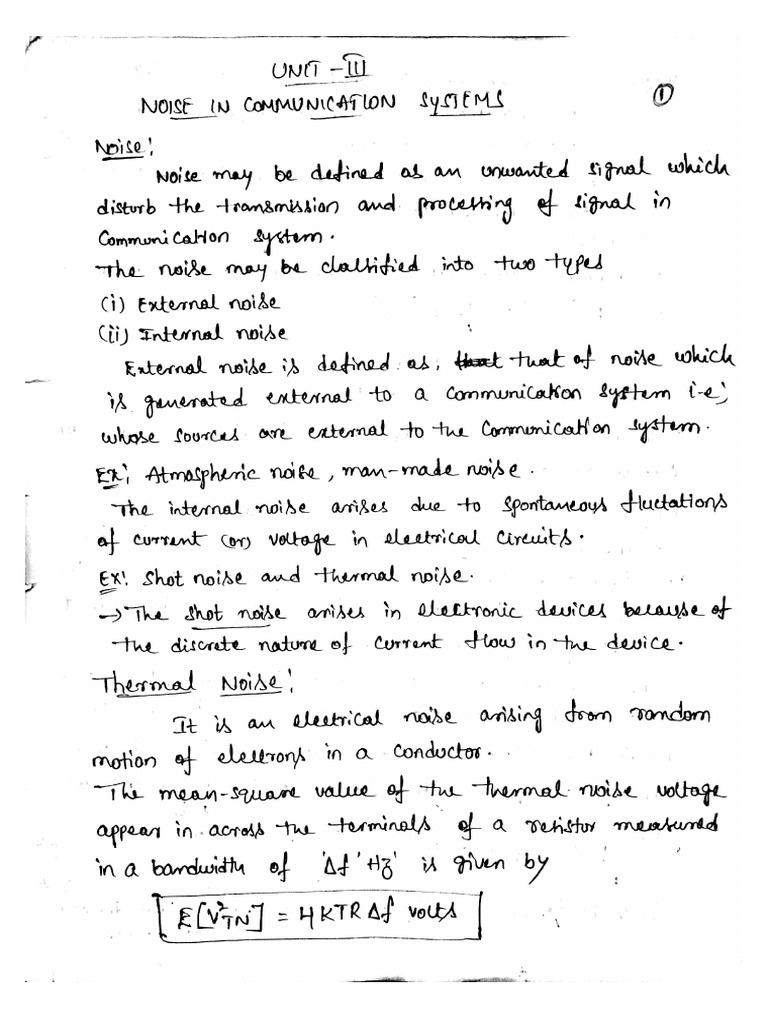 UNIT - III
NOISE IN COMMUNICATION SYSTEMS
①
Noise:
Noise may be defined as an unwanted signal which
disturb the transmission and processing of signal in
Communication system.
The noise may be classified into two types
(i) External noise
(ii) Internal noise
External noise is defined as, that of noise which
is generated external to a communication system i.e;
whose sources are external to the communication system.
Ex: Atmospheric noise, man-made noise.
The internal noise arises due to spontaneous fluctations
of current (or) voltage in electrical circuits.
Ex: Shot noise and thermal noise.
→ The shot noise arises in electronic devices because of
the discrete nature of current flow in the device.
Thermal Noise:
It is an electrical noise arising from random
motion of electrons in a conductor.
The mean-square value of the thermal noise voltage
appear in across the terminals of a resistor measured
in a bandwidth of 'Δf' Hz' is given by
E[V²TN] = 4KTRΔf volts